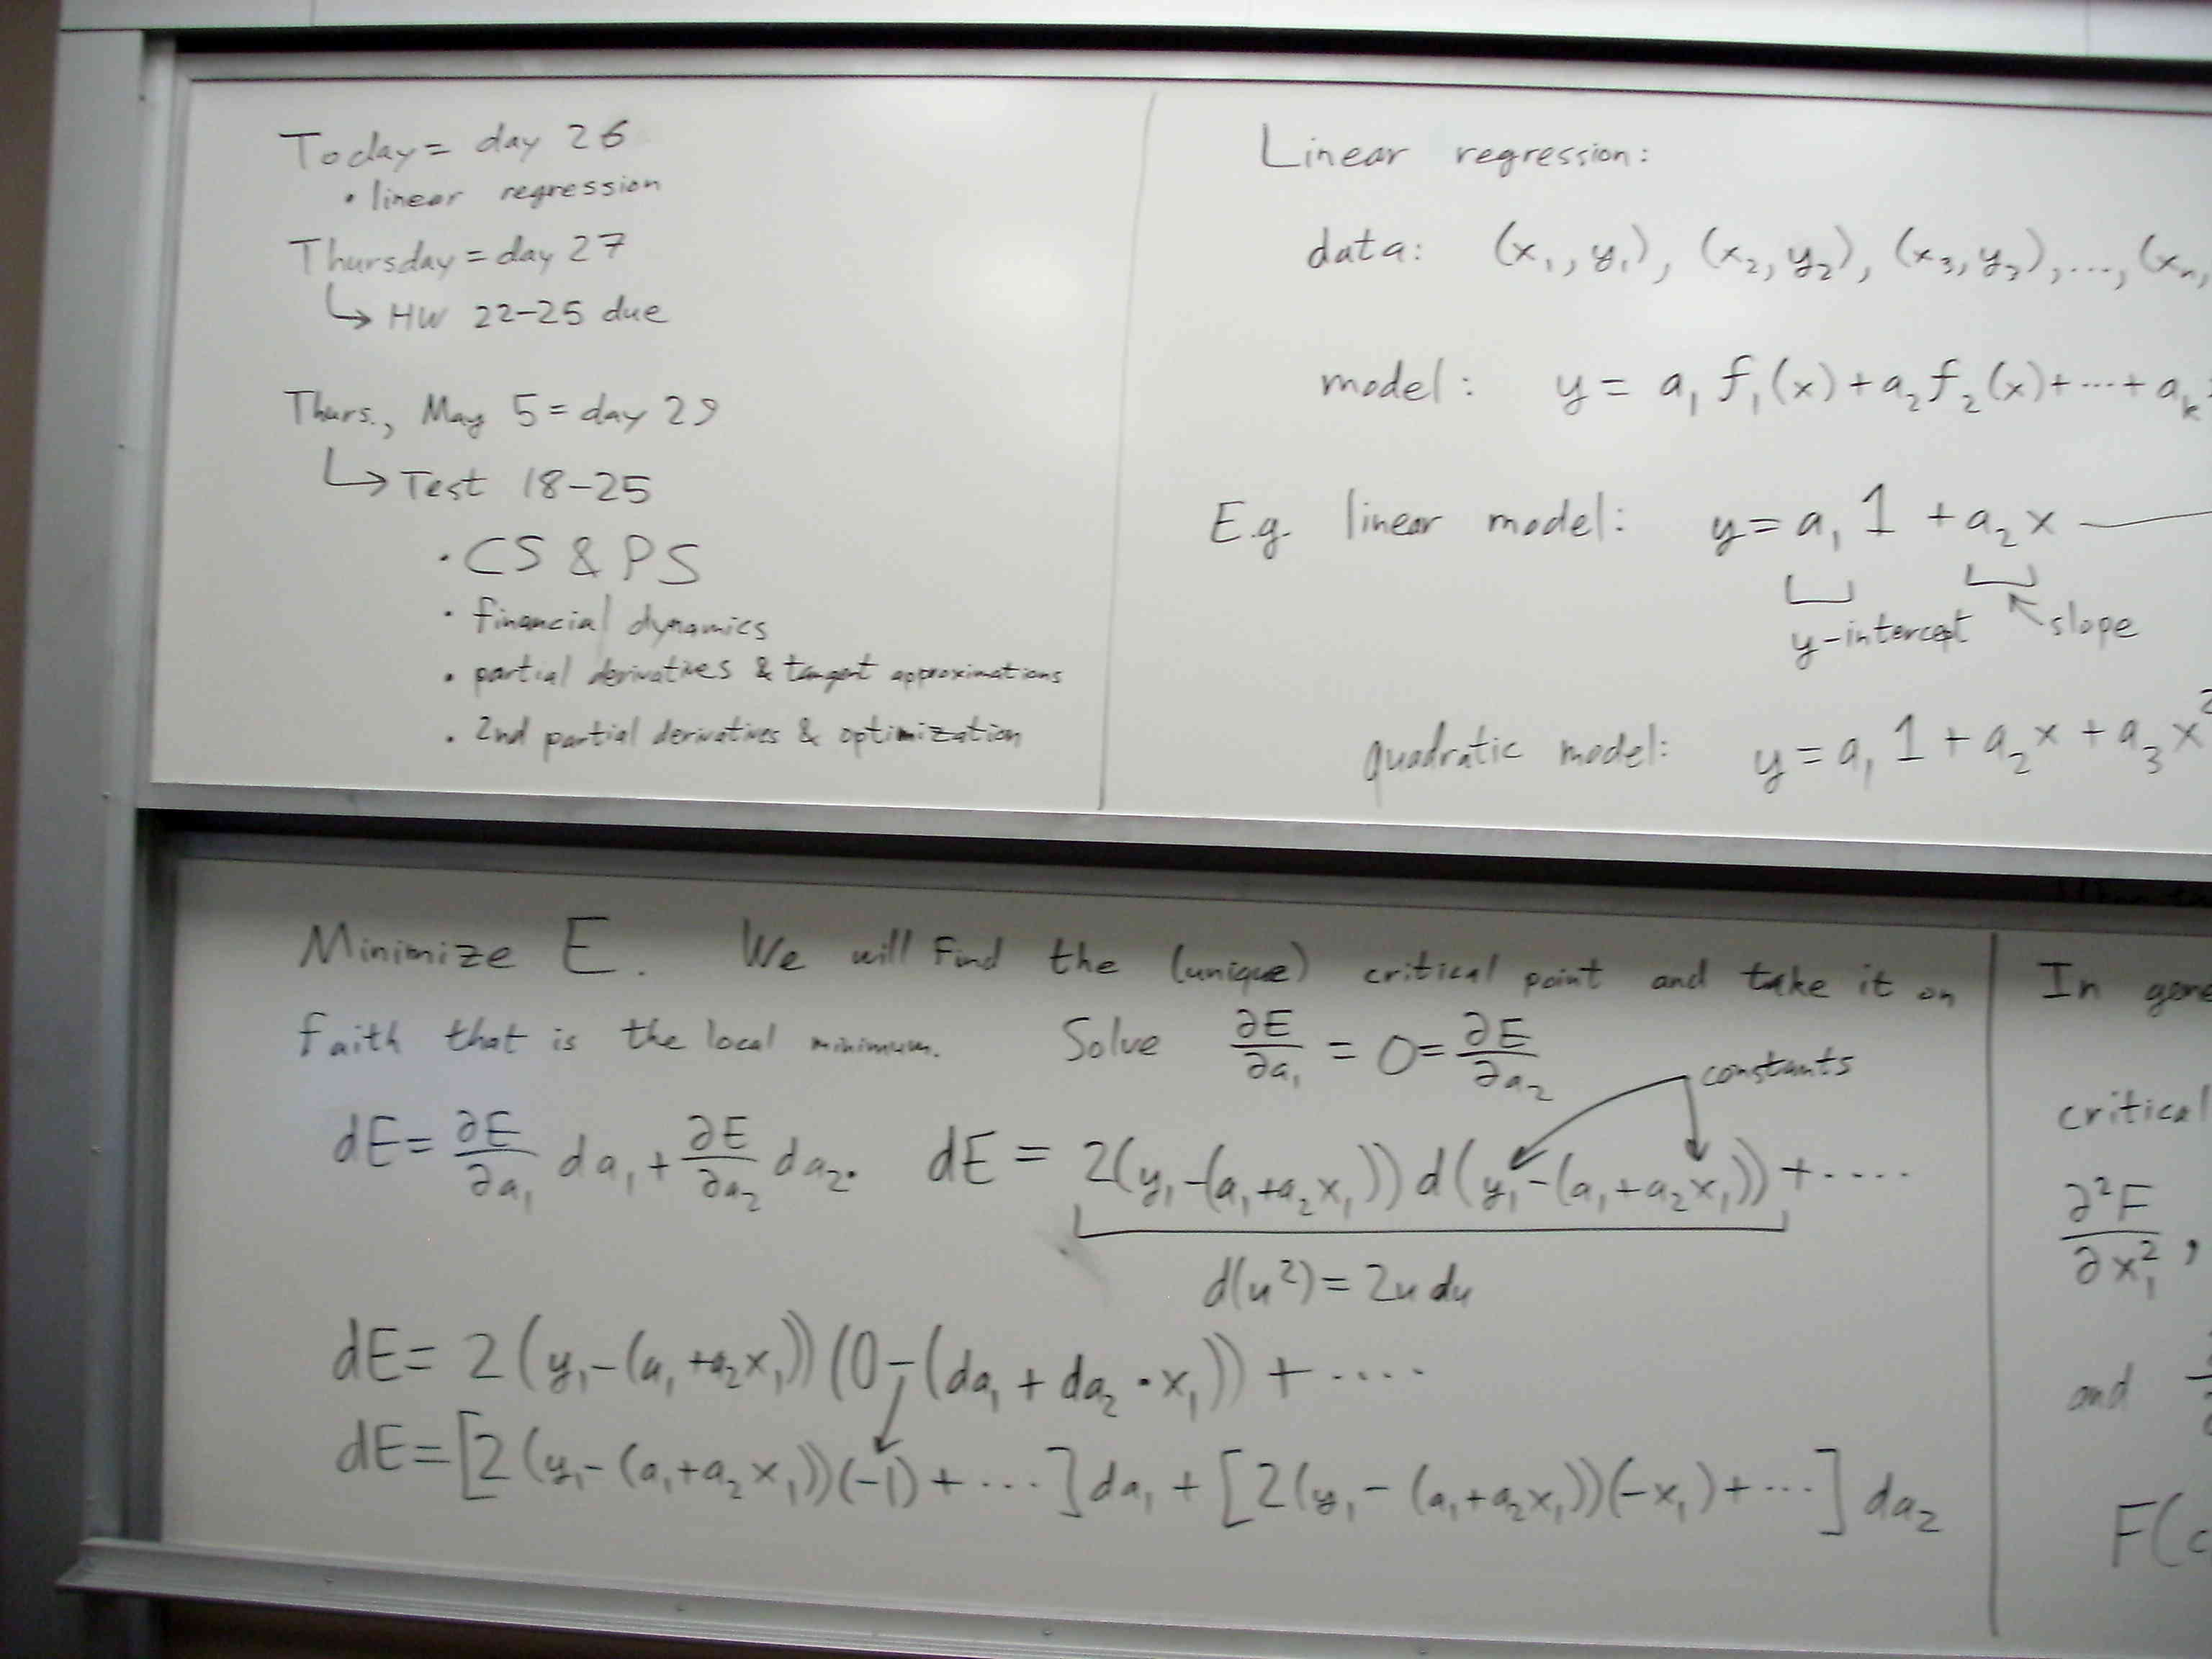 Today = day 26
• linear regression
Thursday = day 27
↳ HW 22-25 due
Thurs., May 5 = day 29
↳ Test 18-25
• CS & PS
• financial dynamics
• partial derivatives & tangent approximations
• 2nd partial derivatives & optimization
Linear regression:
data: (x₁, y₁), (x₂, y₂), (x₃, y₃), ..., (xₙ,
model: y = a₁ f₁(x) + a₂ f₂(x) + ... + aₖ
E.g. linear model: y = a₁ 1 + a₂ x
y-intercept slope
quadratic model: y = a₁ 1 + a₂ x + a₃ x²
Minimize E. We will find the (unique) critical point and take it on
faith that is the local minimum. Solve ∂E/∂a₁ = 0 = ∂E/∂a₂
constants
dE = ∂E/∂a₁ da₁ + ∂E/∂a₂ da₂. dE = 2(y₁-(a₁+a₂x₁)) d(y₁-(a₁+a₂x₁)) + ....
d(u²) = 2u du
dE = 2(y₁-(a₁+a₂x₁))(0-(da₁ + da₂ • x₁)) + ....
dE = [2(y₁-(a₁+a₂x₁))(-1) + ...] da₁ + [2(y₁-(a₁+a₂x₁))(-x₁) + ...] da₂
In gene
critical
∂²F/∂x₁²,
and
F(